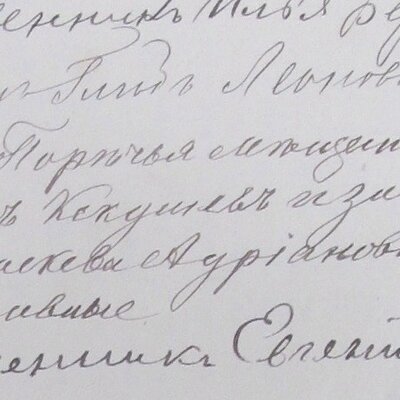 енникъ Илья
Глѣбъ Леонов
Порѣчья мѣщани
ъ Кокушевъ и за
аскева Адріанов
авные
енника Евгені